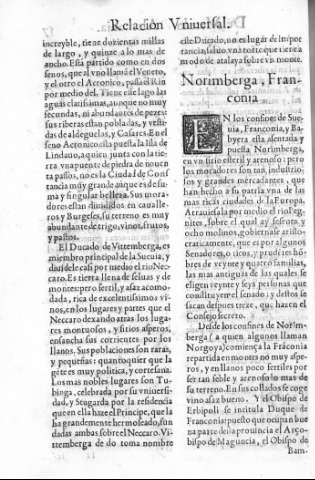 Relacion Vniuersal.
increyble, tiene dozientas millas
de largo, y quinze a lo mas de
ancho. Esta partido como en dos
senos, que al vno llamã el Veneto,
y el otro el Acronico, passa el Rin
por medio del. Tiene este lago las
aguas clarissimas, aunque no muy
fecundas, ni abundantes de pezes:
sus riberas estan pobladas, y vesti-
das de aldeguelas, y Casares. En el
seno Acronico esta puesta la Isla de
Lindauo, a quien junta con la tier-
ra vna puente de piedra de nouen-
ta passos, no es la Ciudad de Cons-
tancia muy grande aunque es de su-
ma y singular belleza. Sus mora-
dores estan diuididos en caualle-
ros y Burgeses, su terreno es muy
abundante de trigo, vinos, frutos,
y pastos.
El Ducado de Vittemberga, es
miembro principal de la Sueuia, y
das ele casi por medio el rio Nec-
caro. Es tierra llena de seluas y de
montes: pero fertil, y assaz acomo-
dada, rica de excelentissimos vi-
nos, en los lugares y partes que el
Neccaro dexando atras los luga-
res montuosos, y sitios asperos,
ensancha sus corrientes por los
llanos. Sus poblaciones son raras,
y pequeñas: quanto quier que la
gẽte es muy politica, y cortesana.
Los mas nobles lugares son Tu-
binga, celebrada por su vniuersi-
dad, y Stugarda por la residencia
que en ella haze el Principe, que la
ha grandemente hermoseado, fun-
dadas ambas sobre el Neccaro. Vi-
ttemberga de do toma nombre
este Ducado, no es lugar de impor
tancia, saluo vna torre que tiene a
modo de atalaya sobre vn monte.
Norimberga, Fran-
conia.
EN los confines de Sue-
uia, Franconia, y Ba-
byera esta assentada y
puesta Norimberga,
en vn sitio esteril y arenoso: pero
los moradores son tan industrio-
sos y grandes mercadantes, que
han hecho a su patria vna de las
mas ricas ciudades de la Europa.
Atrauiessala por medio el rio Peg-
nites, sobre el qual ay sesenta y
ocho molinos, gobiernase aristo-
craticamente, que es por algunos
Senadores, o ricos, y prudẽtes hõ-
bres de veynte y quatro familias,
las mas antiguas de las quales se
eligen veynte y seys personas que
constituyen el senado: y destos se
sacan despues treze, que hazen el
Consejo secreto.
Desde los confines de Norim-
berga (a quien algunos llaman
Norgoya) comiẽça la Frãconia
repartida en montes no muy aspe-
ros, y en llanos poco fertiles por
ser tan seble y arenoso lo mas de
su terreno. En sus collados se coge
vino assaz bueno. Y el Obispo de
Erbipoli se intitula Duque de
Franconia: puesto que ocupan bue
na parte de la prouincia el Arço-
bispo de Maguncia, el Obispo de
Bam-